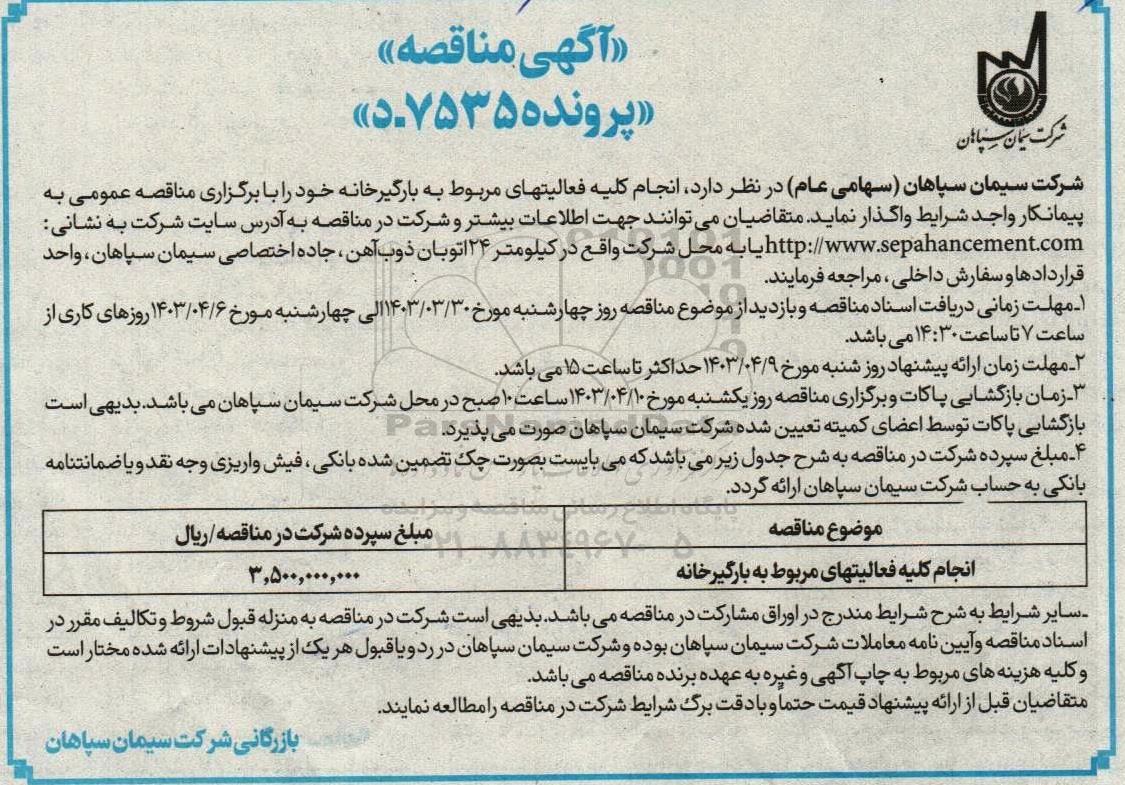 «آگهی مناقصه»
«پرونده ۷۵۳۵-د»
شرکت سیمان سپاهان
شرکت سیمان سپاهان (سهامی عام) در نظر دارد، انجام کلیه فعالیتهای مربوط به بارگیرخانه خود را با برگزاری مناقصه عمومی به
پیمانکار واجد شرایط واگذار نماید. متقاضیان می توانند جهت اطلاعات بیشتر و شرکت در مناقصه به آدرس سایت شرکت به نشانی:
http://www.sepahancement.com یا به محل شرکت واقع در کیلومتر ۲۴ اتوبان ذوب‌آهن، جاده اختصاصی سیمان سپاهان، واحد
قراردادها و سفارش داخلی، مراجعه فرمایند.
۱-مهلت زمانی دریافت اسناد مناقصه و بازدید از موضوع مناقصه روز چهارشنبه مورخ ۱۴۰۳/۰۳/۳۰ الی چهارشنبه مورخ ۱۴۰۳/۰۴/۶ روزهای کاری از
ساعت ۷ تا ساعت ۱۴:۳۰ می باشد.
۲-مهلت زمان ارائه پیشنهاد روز شنبه مورخ ۱۴۰۳/۰۴/۹ حداکثر تا ساعت ۱۵ می باشد.
۳-زمان بازگشایی پاکات و برگزاری مناقصه روز یکشنبه مورخ ۱۴۰۳/۰۴/۱۰ ساعت ۱۰ صبح در محل شرکت سیمان سپاهان می باشد. بدیهی است
بازگشایی پاکات توسط اعضای کمیته تعیین شده شرکت سیمان سپاهان صورت می پذیرد.
۴-مبلغ سپرده شرکت در مناقصه به شرح جدول زیر می باشد که می بایست بصورت چک تضمین شده بانکی، فیش واریزی وجه نقد و یا ضمانتنامه
بانکی به حساب شرکت سیمان سپاهان ارائه گردد.
موضوع مناقصه مبلغ سپرده شرکت در مناقصه/ریال
انجام کلیه فعالیتهای مربوط به بارگیرخانه ۳,۵۰۰,۰۰۰,۰۰۰
-سایر شرایط به شرح شرایط مندرج در اوراق مشارکت در مناقصه می باشد. بدیهی است شرکت در مناقصه به منزله قبول شروط و تکالیف مقرر در
اسناد مناقصه و آیین نامه معاملات شرکت سیمان سپاهان بوده و شرکت سیمان سپاهان در رد و یا قبول هر یک از پیشنهادات ارائه شده مختار است
و کلیه هزینه های مربوط به چاپ آگهی و غیره به عهده برنده مناقصه می باشد.
متقاضیان قبل از ارائه پیشنهاد قیمت حتماً و با دقت برگ شرایط شرکت در مناقصه را مطالعه نمایند.
بازرگانی شرکت سیمان سپاهان
ParsNamadData
پایگاه اطلاع رسانی مناقصه و مزایده
۰۲۱-۸۸۳۴۹۶۷۰-۵